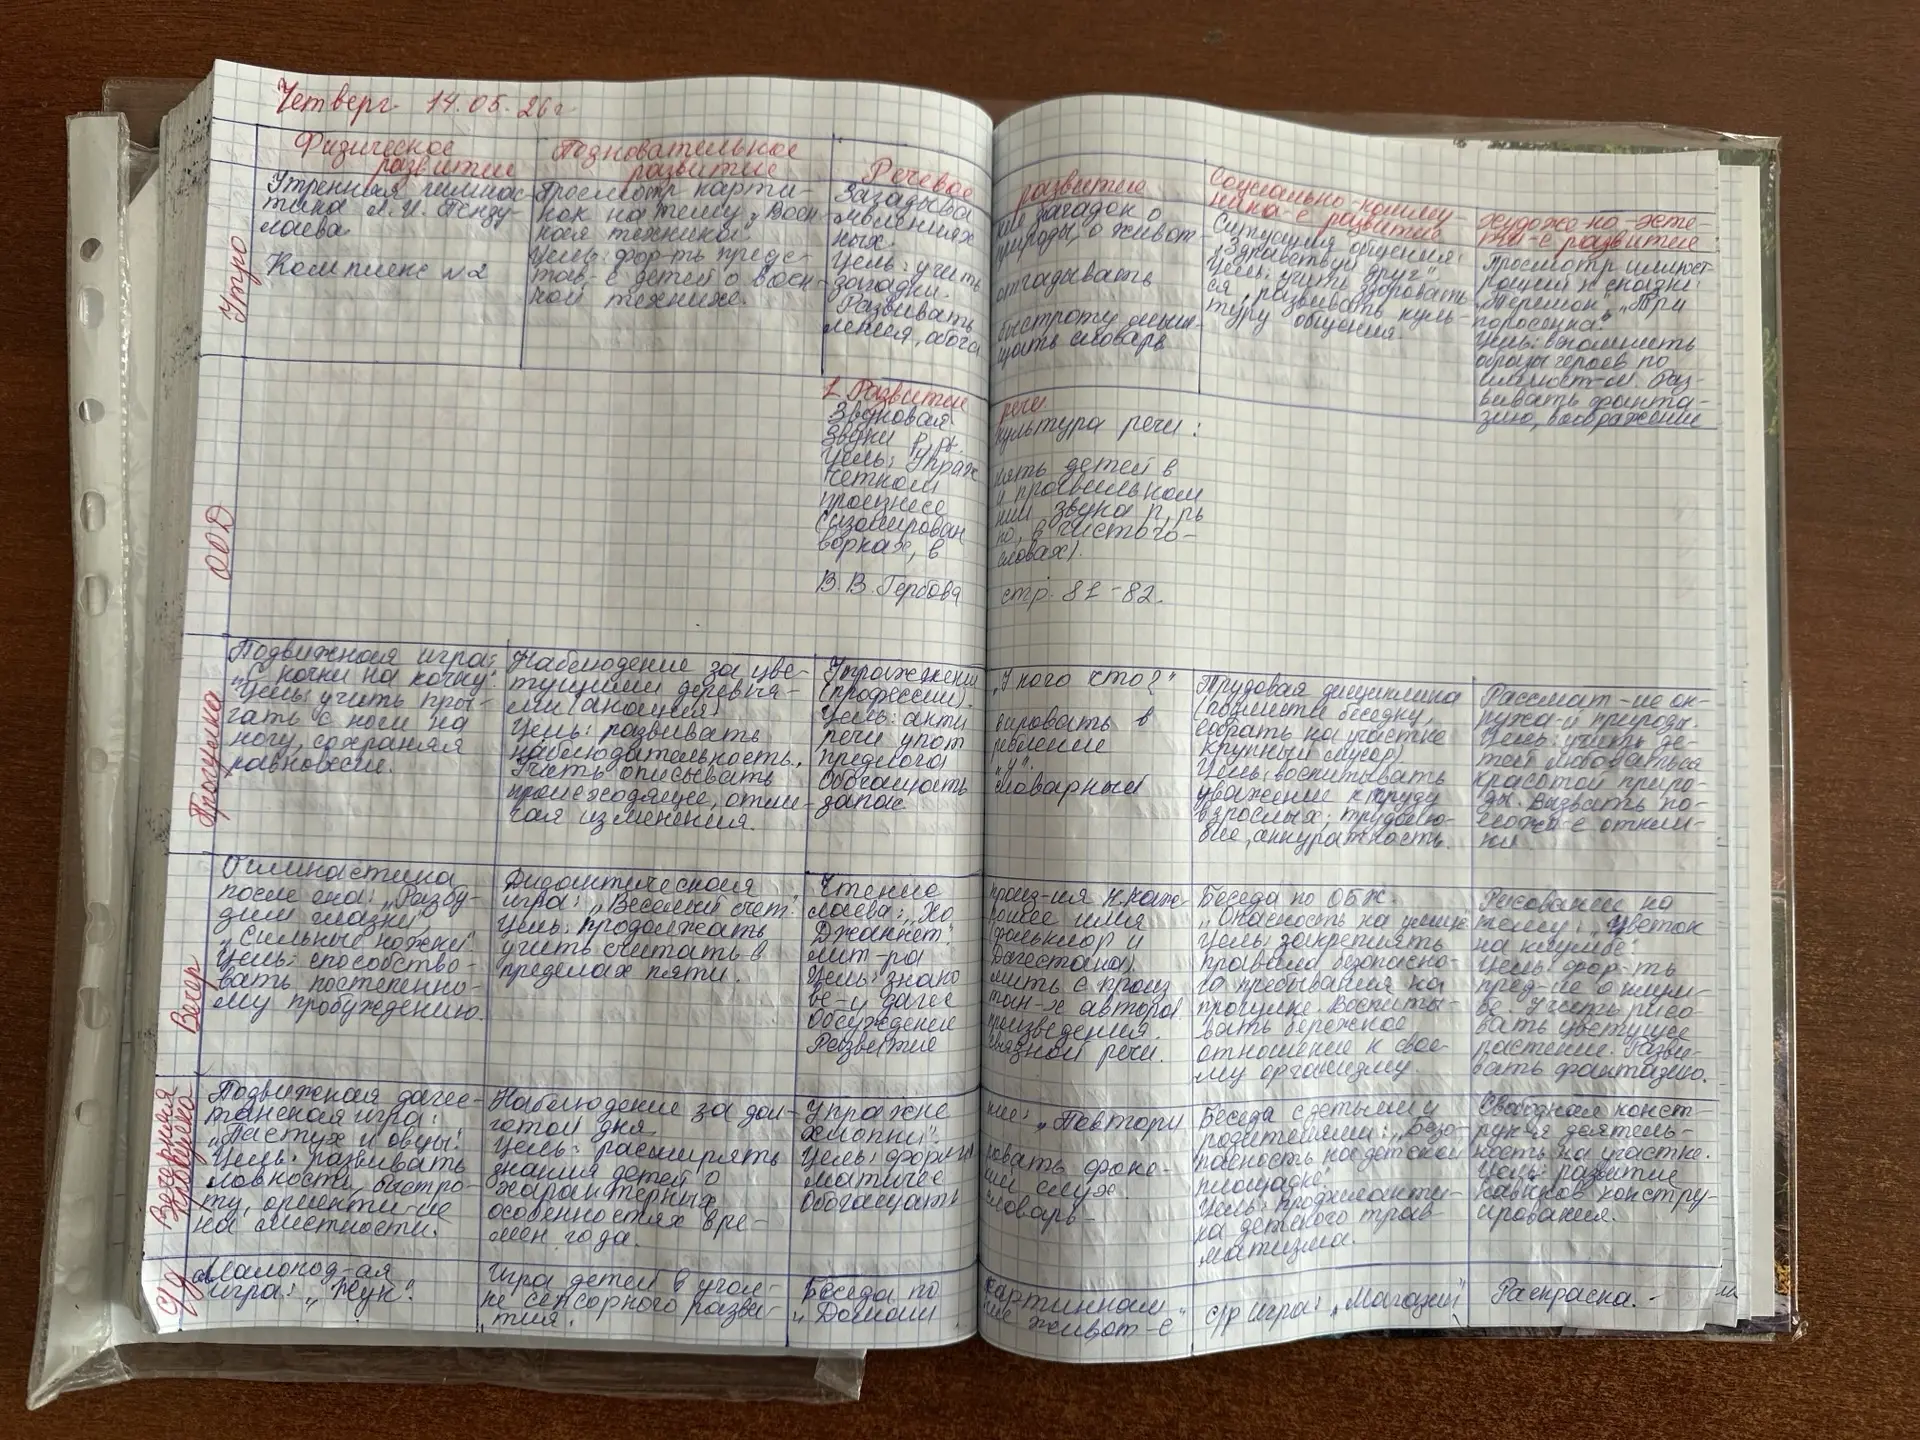 Четверг 14.05.26г
Физическое развитие
Познавательное развитие
Речевое развитие
Социально-комму-
ника-е развитие
Художе-но-эсте-
ти-е развитие
Утро
Утренняя гимнас-
тика Л.И. Пензу-
лаева
Комплекс №2
Просмотр карти-
нок на тему „Воен-
ная техника".
Цель: фор-ть предс-
тав-е детей о воен-
ной технике.
Загадыва ние загадок о
явлениях природы, о живот-
ных.
Цель: учить отгадывать
загадки.
Развивать быстроту мыш-
ления, обога щать словарь
Ситуация общения:
„Здравствуй друг"
Цель: учить здоровать
ся, развивать куль-
туру общения.
Просмотр иллюст-
раций к сказке:
„Теремок", „Три
поросенка".
Цель: вспомнить
образы героев по
иллюст-ии. Раз-
вивать фанта-
зию, воображение
ООД
1. Развитие речи.
Звуковая культура речи:
звуки р, рь.
Цель: Упраж нять детей в
четком и правильном
произнесе нии звука р, рь
(изолирован но, в чистого-
ворках, в словах).
В.В. Гербова стр. 81-82.
Прогулка
Подвижная игра:
„С кочки на кочку".
Цель: учить пры-
гать с ноги на
ногу, сохраняя
равновесие.
Наблюдение за цве-
тущими деревья-
ми (акация)
Цель: развивать
наблюдательность.
Учить описывать
происходящее, отме-
чая изменения.
Упражнение „У кого кто?"
(профессии).
Цель: акти вировать в
речи упот ребление
предлога „у".
Обогащать словарный
запас
Трудовая дисциплина
(помести беседку,
собрать на участке
крупный мусор).
Цель: воспитывать
уважение к труду
взрослых, трудолю-
бие, аккуратность.
Рассмат-ие ок-
ружа-й природы.
Цель: учить де-
тей любоваться
красотой приро-
ды. Вызвать по-
ложи-е откли-
ки
Вечер
Гимнастика
после сна: „Разбу-
дим глазки",
„Сильные ножки"
Цель: способство-
вать постепенно-
му пробуждению.
Дидактическая
игра: „Веселый счет".
Цель: продолжать
учить считать в
пределах пяти.
Чтение произ-ия К.Каж-
лаева: „Хо рошее имя
Джаннет". (фольклор и
лит-ра Дагестана).
Цель: знако мить с произ
ве-и дагес тан-х авторов
Обсуждение произведения.
Развитие связной речи.
Беседа по ОБЖ.
„Опасность на улице"
Цель: закреплять
правила безопасно-
го пребывания на
прогулке. Воспиты-
вать бережное
отношение к свое-
му организму.
Рисование на
тему: „Цветок
на клумбе".
Цель: фор-ть
пред-ие о клум-
бе. Учить рисо-
вать цветущее
растение. Разви-
вать фантазию.
Вечерняя прогулка
Подвижная дагес-
танская игра:
„Пастух и овцы".
Цель: развивать
ловкость, быстро-
ту, ориенти-ие
на местности.
Наблюдение за дол-
готой дня
Цель: расширять
знания детей о
характерных
особенностях вре-
мен года.
Упражне ние: „Повтори
хлопки".
Цель: форми ровать фоне-
матичес кий слух.
Обогащать словарь-
Беседа с детьми и
родителями: „Безо-
пасность на детской
площадке"
Цель: профилакти-
ка детского трав-
матизма.
Свободная конст-
рук-я деятель-
ность на участке.
Цель: развитие
навыков констру-
ирования.
СД
Малопод-ая
игра: „Жук".
Игра детей в угол-
ке сенсорного разви-
тия.
Беседа по картинкам
„Домаш ние живот-е"
с/р игра: „Магазин"
Раскраска. -